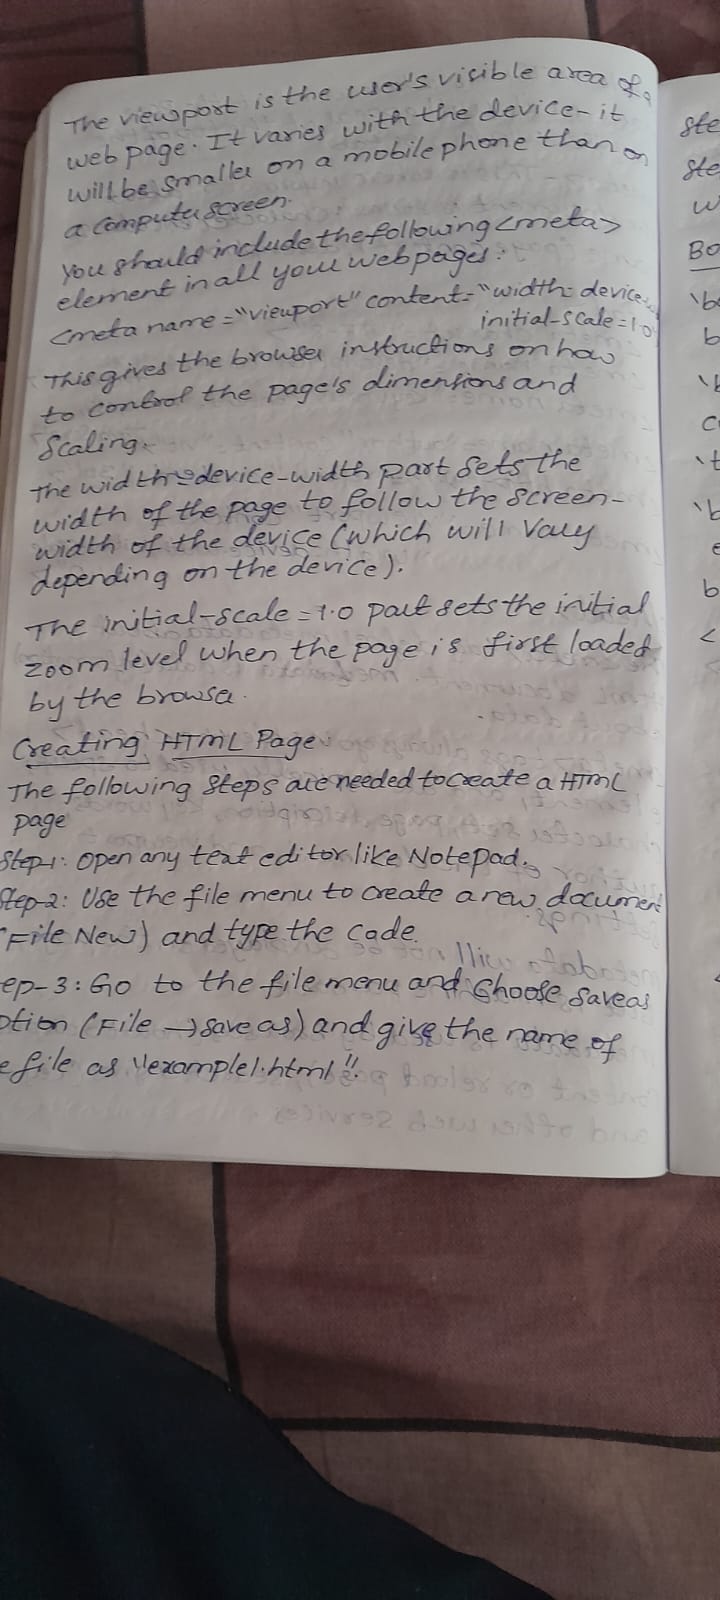 The viewport is the user's visible area of a
web page. It varies with the device - it
will be smaller on a mobile phone than on
a computer screen.
You should include the following <meta>
element in all your webpages:
<meta name="viewport" content="width=device-
initial-scale=1.0
This gives the browser instructions on how
to control the page's dimensions and
Scaling.
The width=device-width part sets the
width of the page to follow the screen-
width of the device (which will vary
depending on the device).
The initial-scale=1.0 part sets the initial
zoom level when the page is first loaded
by the browser.
Creating HTML Page:
The following steps are needed to create a HTML
page
Step-1: Open any text editor like Notepad.
Step-2: Use the file menu to create a new document
(File New) and type the code.
ep-3: Go to the file menu and choose save as
ption (File → save as) and give the name of
e file as "example1.html".
ste
ste
w
BO